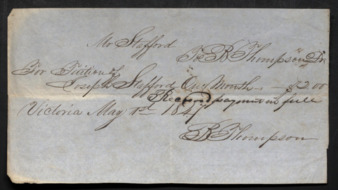 Mr Stafford
To R Thompson Dr
For Tuition of
Joseph Stafford One Month $3.00
Received payment in full
Victoria May 1st 1847
R Thompson